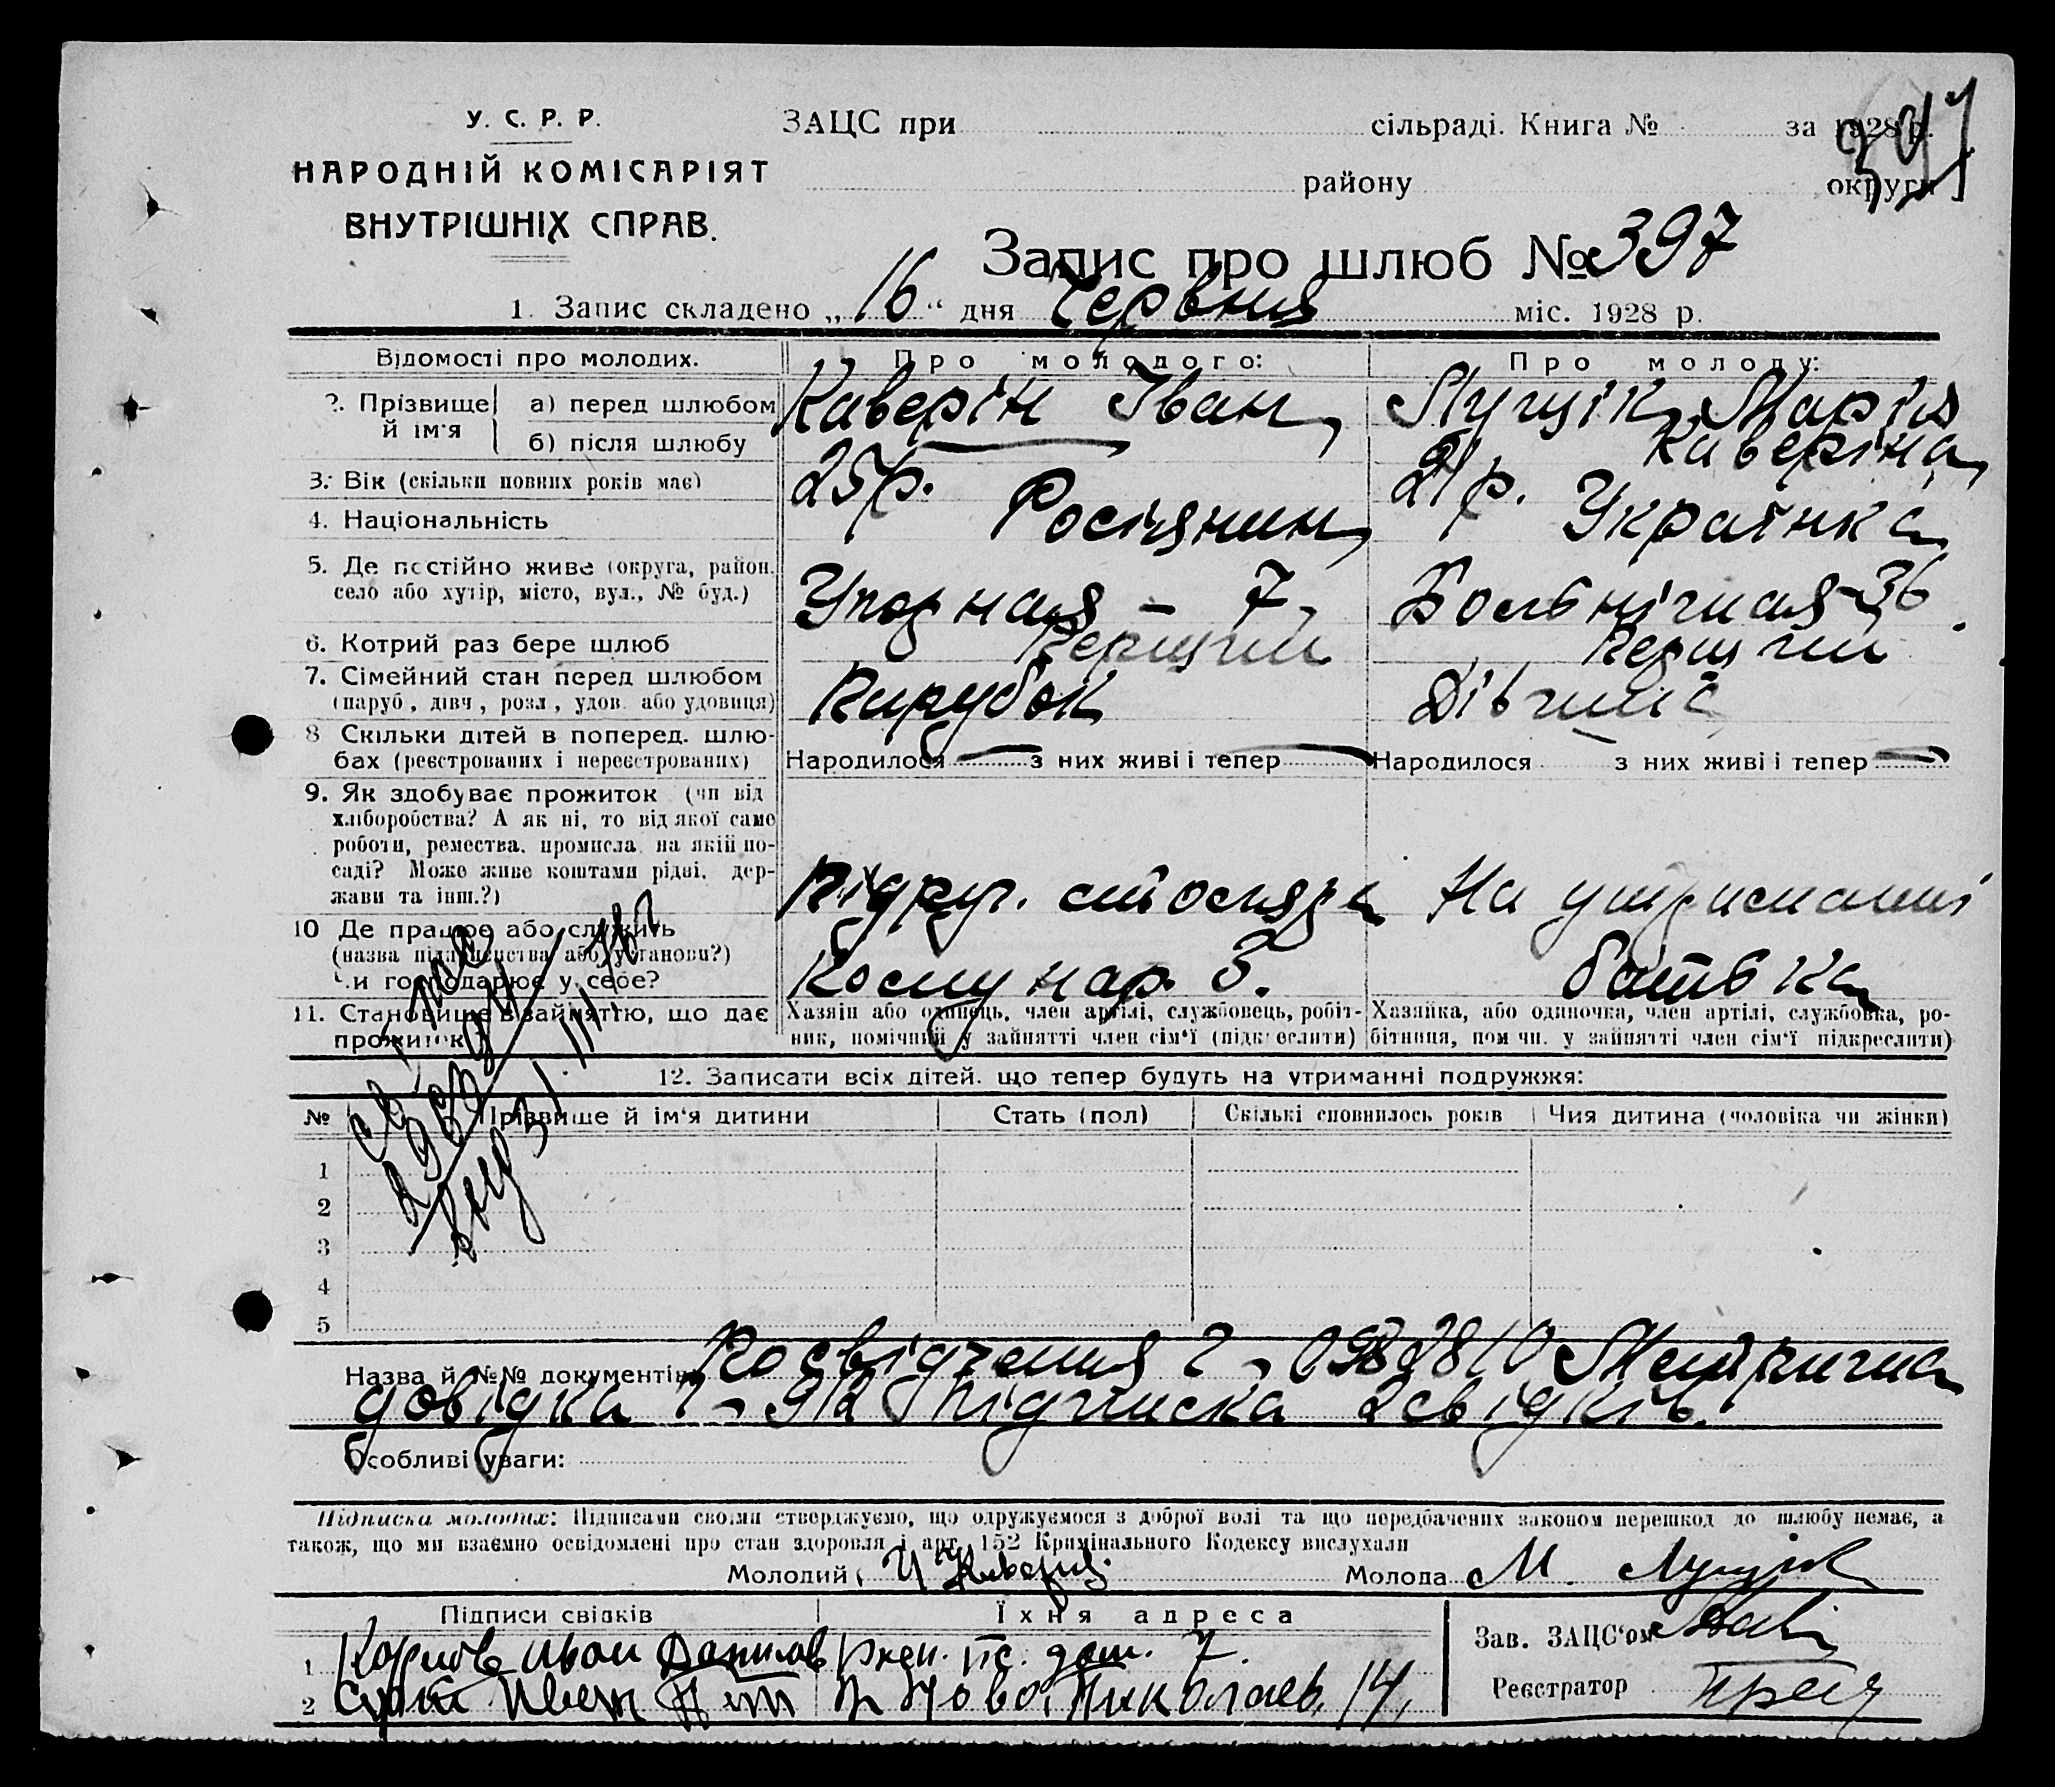 У. С. Р. Р.
НАРОДНІЙ КОМІСАРІЯТ
ВНУТРІШНІХ СПРАВ.
ЗАЦС при сільраді. Книга № за 1928 р.
району округи
397
Запис про шлюб № 397
1. Запис складено „16“ дня Червня міс. 1928 р.
Відомості про молодих. Про молодого: Про молоду:
2. Прізвище й ім'я а) перед шлюбом Каверін Іван Лущік Марія
б) після шлюбу Каверіна
3. Вік (скільки повних років має) 25 р. 21 р.
4. Національність Росіянин Українка
5. Де постійно живе (округа, район,
село або хутір, місто, вул., № буд.) Упорная – 7. Больнічная – 36.
6. Котрий раз бере шлюб Перший Перший
7. Сімейний стан перед шлюбом
(паруб., дівч., розл., удов. або удовиця) Парубок Дівчина
8 Скільки дітей в поперед. шлю-
бах (реєстрованих і нереєстрованих) Народилося з них живі і тепер Народилося з них живі і тепер
9. Як здобуває прожиток (чи від
хліборобства? А як ні, то від якої саме
роботи, ремества, промисла, на якій по-
саді? Може живе коштами рідні, дер-
жави та інш.?) Підруч. слюсаря На утриманні
10 Де працює або служить
(назва підприємства або установи?)
Чи господарює у себе? Комунар. 5. батька
11. Становище в зайняттю, що дає
прожиток
Хазяін або одинець, член артілі, службовець, робіт-
ник, помічний у зайнятті член сім'ї (підкреслити)
Хазяйка, або одиночка, член артілі, службовка, ро-
бітниця, пом чн. у зайнятті член сім'ї підкреслити)
12. Записати всіх дітей, що тепер будуть на утриманні подружжя:
№ Прізвище й ім'я дитини Стать (пол) Скількі сповнилось років Чия дитина (чоловіка чи жінки)
1
2
3
4
5
Назва й №№ документів Посвідчення Метрична
довідка підписка 2 свідків.
Особливі уваги:
Підписка молодих: Підписами своїми стверджуємо, що одружуємося з доброї волі та що передбачених законом перешкод до шлюбу немає, а
також, що ми взаємно освідомлені про стан здоровля і арт. 152 Кримінального Кодексу вислухали
Молодий И Каверин Молода М. Лущік
Підписи свідків Їхня адреса
1 Иван дом. 7.
2 Николаев. 14.
Зав. ЗАЦС'ом
Реєстратор